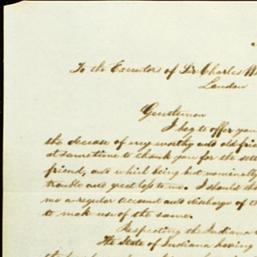 To the Executor of Dr Charles
London
Gentlemen
I beg to offer you
the decease of my worthy and old
at same time to thank you for the
friend, and which being but nominally
trouble and great loss to me. I should
me a regular account and discharge of
to make use of the same.
Respecting the Indiana
The State of Indiana having